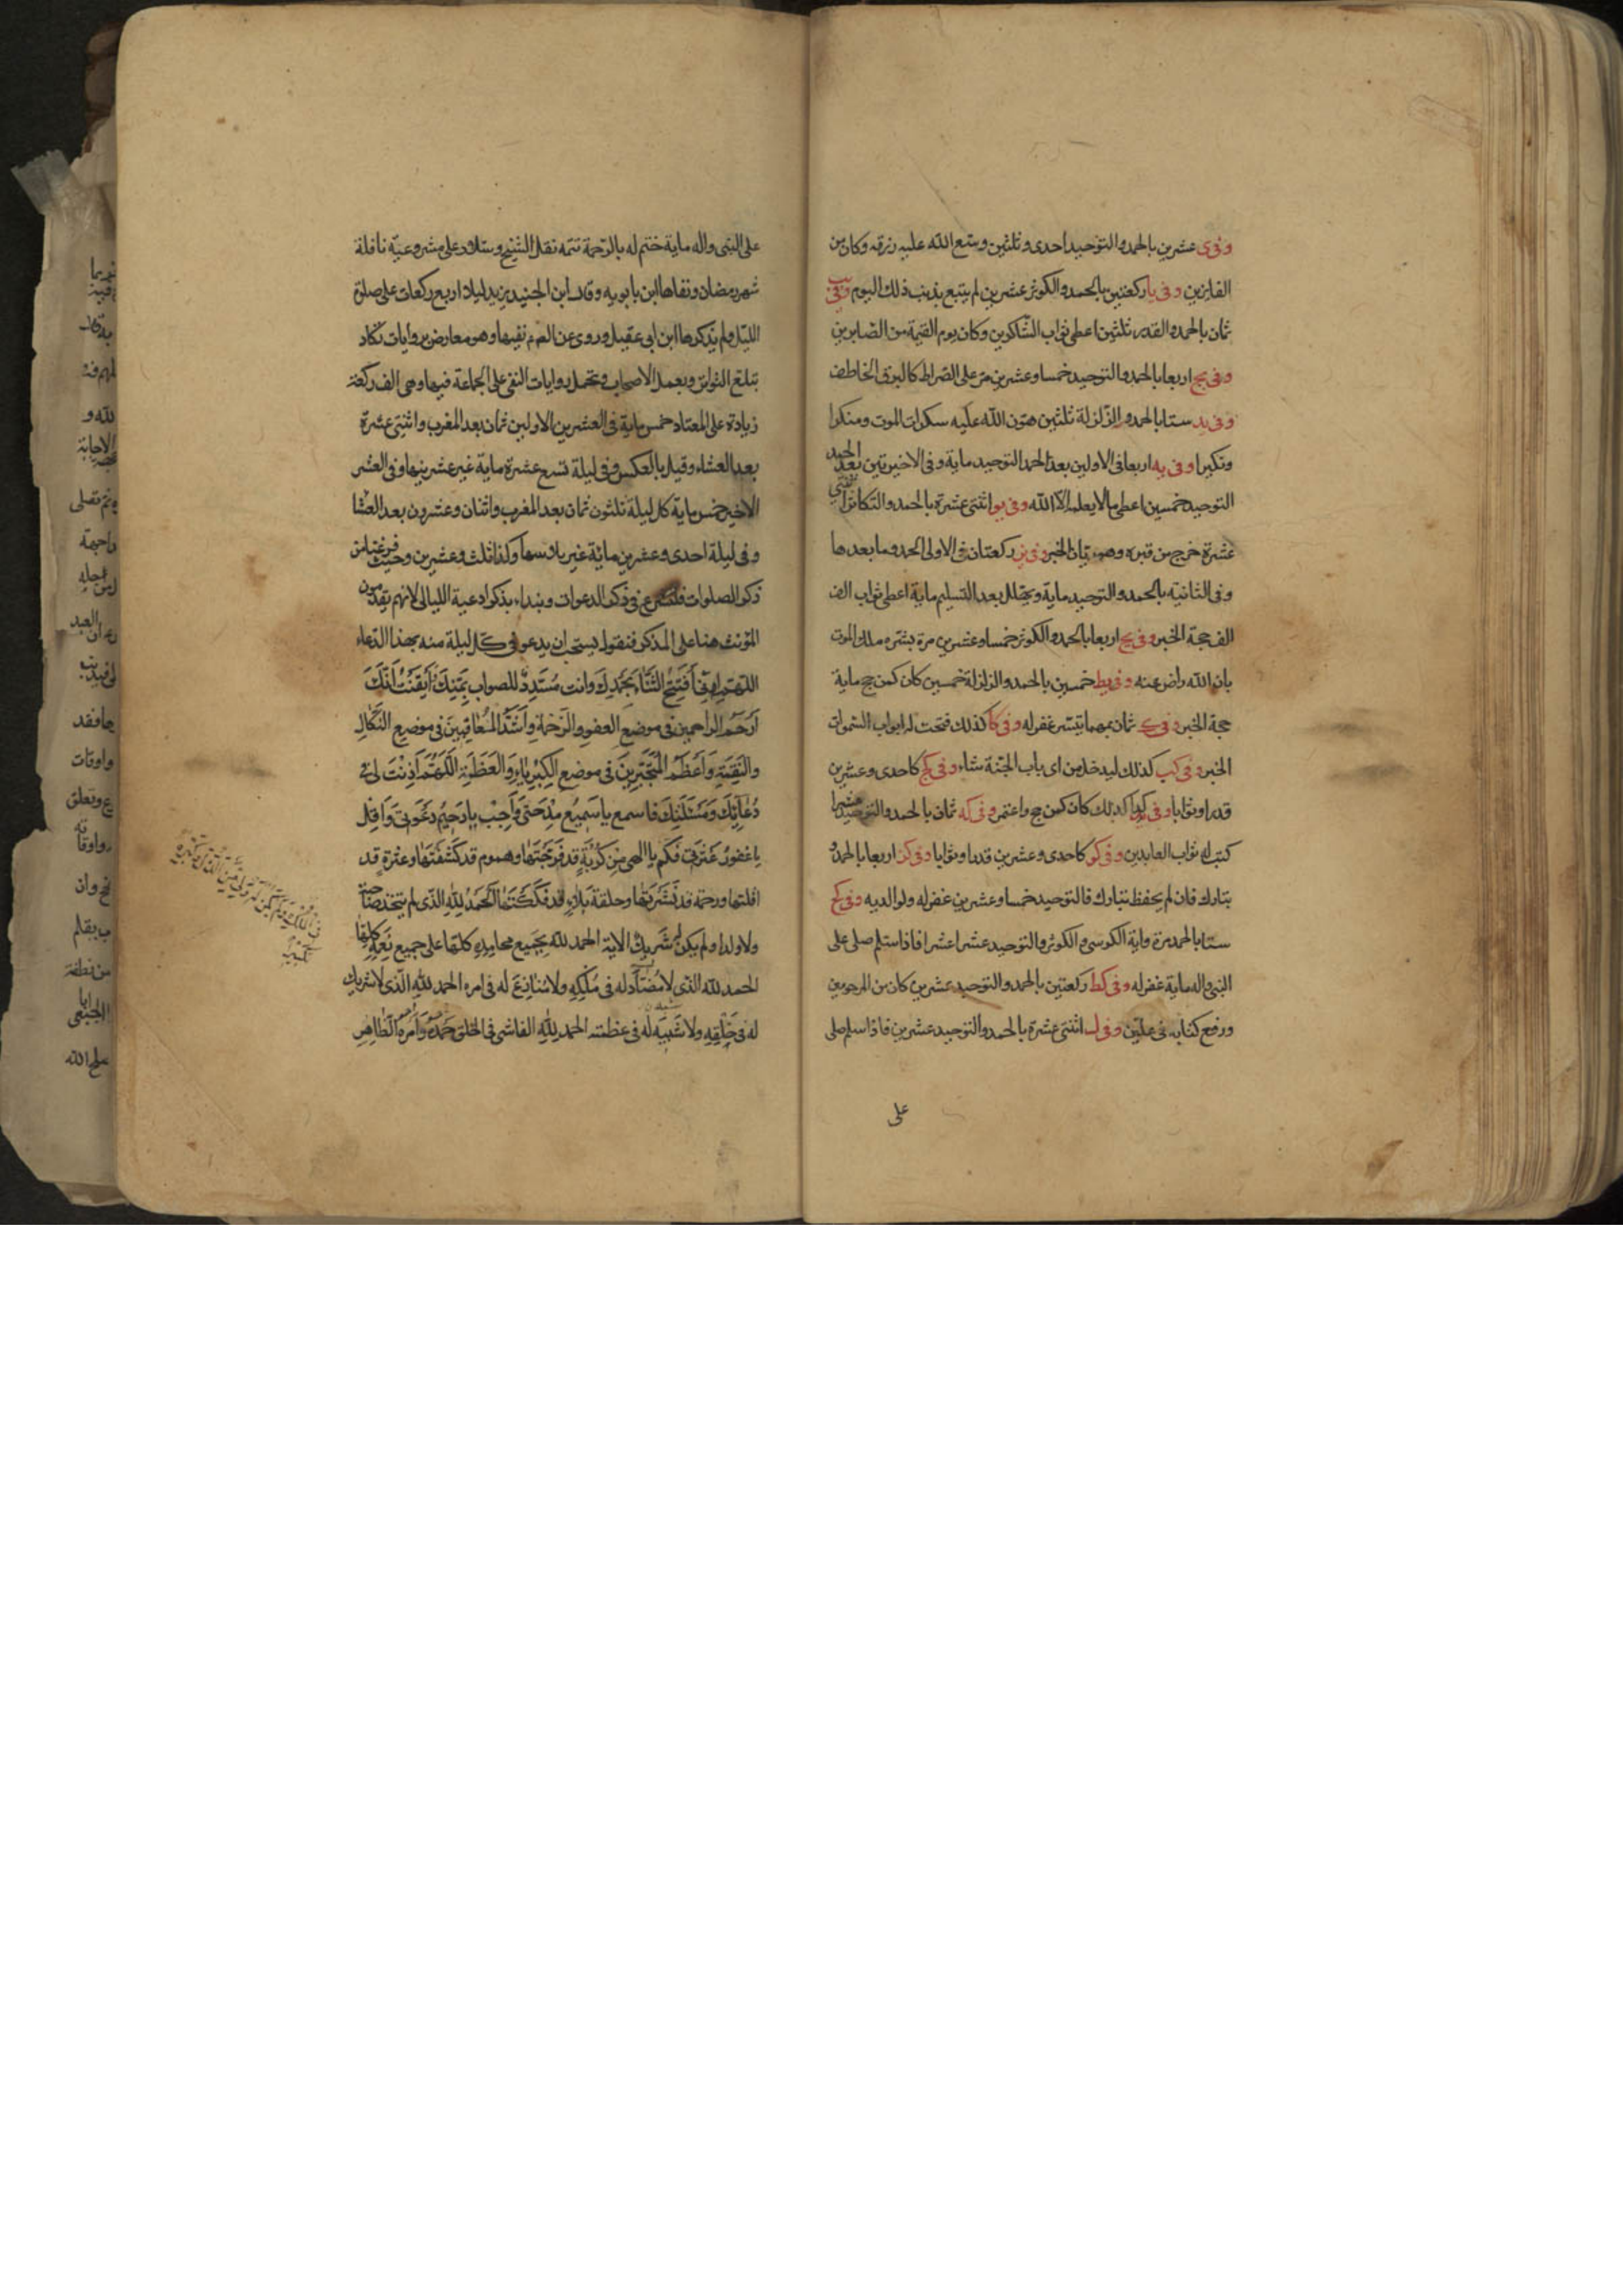 وفى ى عشرين بالحمد والتوحيد احدى وثلثين وسّع الله عليه رزقه وكان من
الفايزين وفى يا ركعتين بالحمد والكوثر عشرين لم يتبع بذنب ذلك اليوم وفى يب
ثمان بالحمد والقدر ثلثين اعطى ثواب الشاكرين وكان يوم القيمة من الصّابرين
وفى يج اربعا بالحمد والتوحيد خمسا وعشرين مرّ على الصّراط كالبرق الخاطف
وفى يد ستا بالحمد والزلزلة ثلثين هوّن الله عليه سكرات الموت ومنكرا
ونكيرا وفى يه اربعا فى الاولين بعد الحمد التوحيد ماية وفى الاخيرتين بعد الحمد
التوحيد خمسين اعطى ما لا يعلمه الا الله وفى يو اثنتى عشرة بالحمد والتكاثر اثنتي
عشرة خرج من قبره وهو ريّان الخبر وفى يز ركعتان فى الاولى الحمد وما بعدها
وفى الثانية بالحمد والتوحيد ماية ويهلل بعد التسليم ماية اعطى ثواب الف
الف حجة الخبر وفى يح اربعا بالحمد والكوثر خمسا وعشرين مرة بشّره ملك الموت
بان الله راض عنه وفى يط خمسين بالحمد والزلزلة خمسين كان كمن حج ماية
حجة الخبر وفى ك ثمان بمهما تيسّر غفر له وفى كا كذلك فتحت له ابواب السّموات
الخبر وفى كب كذلك ليدخل من اى باب الجنّة شاء وفى كج كاحدى وعشرين
قدرا وثوابا وفى كد كذلك كان كمن حج واعتمر وفى كه ثمان بالحمد والتوحيد عشرا
كتب له ثواب العابدين وفى كو كاحدى وعشرين قدرا وثوابا وفى كز اربعا بالحمد و
بتبارك فان لم يحفظ تبارك فالتوحيد خمسا وعشرين غفر له ولوالديه وفى كح
ستا بالحمد مرة واية الكرسى والكوثر والتوحيد عشرا عشرا فاذا سلم صلى على
النبى واله ماية غفر له وفى كط ركعتين بالحمد والتوحيد عشرين كان من المرحومين
ورفع كتابه فى علّيين وفى ل اثنتى عشرة بالحمد والتوحيد عشرين فاذا سلم صلى
على
على النبى واله ماية ختم له بالرّحمة تتمّه نقل الشيخ وسلار على مشروعيّة نافلة
شهر رمضان ونفاها ابن بابويه وقال ابن الجنيد يزيد ليلا اربع ركعات على صلوة
الليل ولم يذكرها ابن ابى عقيل وروى عن نفيها وهو معارض بروايات تكاد
تبلغ التواتر وبعمل الاصحاب وتحمل روايات النفى على الجماعة فيها وهى الف ركعة
زيادة على المعتاد خمس ماية فى العشرين الاولين ثمان بعد المغرب واثنتى عشرة
بعد العشاء وقيل بالعكس وفى ليلة تسع عشرة ماية غير عشرينها وفى العشر
الاخير خمس ماية كل ليلة ثلثون ثمان بعد المغرب واثنان وعشرون بعد العشا
وفى ليلة احدى وعشرين مائة غير وكذا ثلث وعشرين وحيث فرغنا من
ذكر الصلوات فلنشرع فى ذكر الدعوات ونبداء بذكر ادعية الليالى لانهم يقدمون
المؤنث هنا على المذكر فنقول يستحب ان يدعو فى كل ليلة منه بهذا الدّعاء
اللّهمّ إنّى أَفْتَتِحُ الثَّنَاءَ بِحَمْدِكَ وانت مُسَدِّدٌ للصواب بِمَنِّكَ وأَيْقَنْتُ أَنَّكَ
اَرْحَمُ الراحمين فى موضع العفو والرَّحْمَةِ وَاَشَدُّ المُعَاقِبِينَ فى موضع النَّكَالِ
والنَّقِمَةِ وَاَعْظَمُ المُتَجَبِّرِينَ فى موضع الكِبْرِيَاءِ وَالعَظَمَةِ اَللّهُمَّ اَذِنْتَ لى فى
دُعَائِكَ وَمَسْئَلَتِكَ فاسمع يا سَمِيعُ مِدْحَتى وَاَجِبْ يا رَحِيمُ دَعْوَتى وَاَقِل
يا غفورُ عَثْرَتى فَكَم يا الهى مِن كُرْبَةٍ قد فَرَّجْتَهَا وهموم قد كَشَفْتَهَا وعثرةٍ قد
اقلتها ورحمة قد نَشَرْتَهَا وحلقة بَلَاءٍ قد فَكَكْتَهَا اَلْحَمْدُ لِلّهِ الّذى لم يتّخذ صاحبة
ولا ولدا ولم يكن له شَرِيك الاية الحمد للّه بِجَمِيعِ محامِدِهِ كلّها على جميع نِعَمِهِ كلِّها
الحمد للّه الذى لا مُضَادّ له فى مُلْكِهِ ولا مُنَازِعَ له فى امره الحمد للّهِ الّذى لا شريك
له فى خَلْقِهِ ولا شَبِيه له فى عظمته الحمد لِلّهِ الفاشى فى الخلق حَمْدُهُ وَاَمْرُهُ الظَاهِرِ